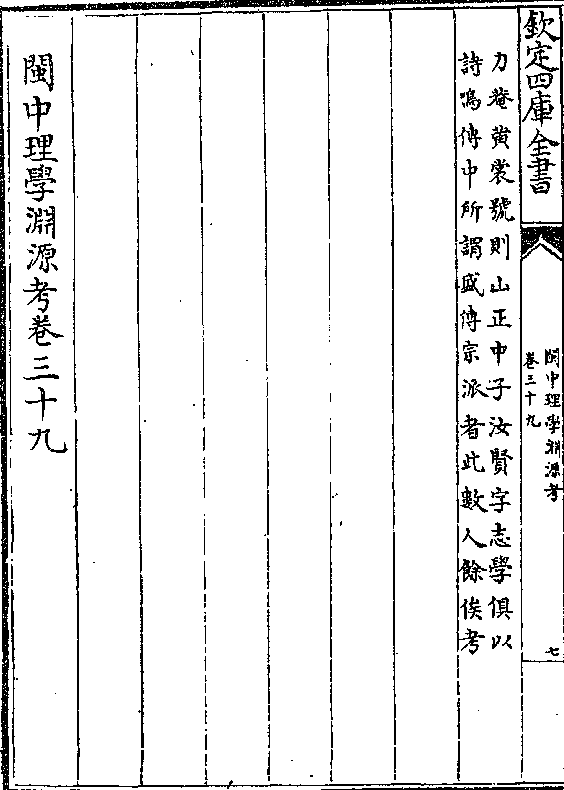 欽定四庫全書
閩中理學淵源考
卷三十九
七
力菴黄裳號則山正中子汝賢字志學俱以
詩鳴傳中所謂盛傳宗派者此數人餘俟考
閩中理學淵源考卷三十九